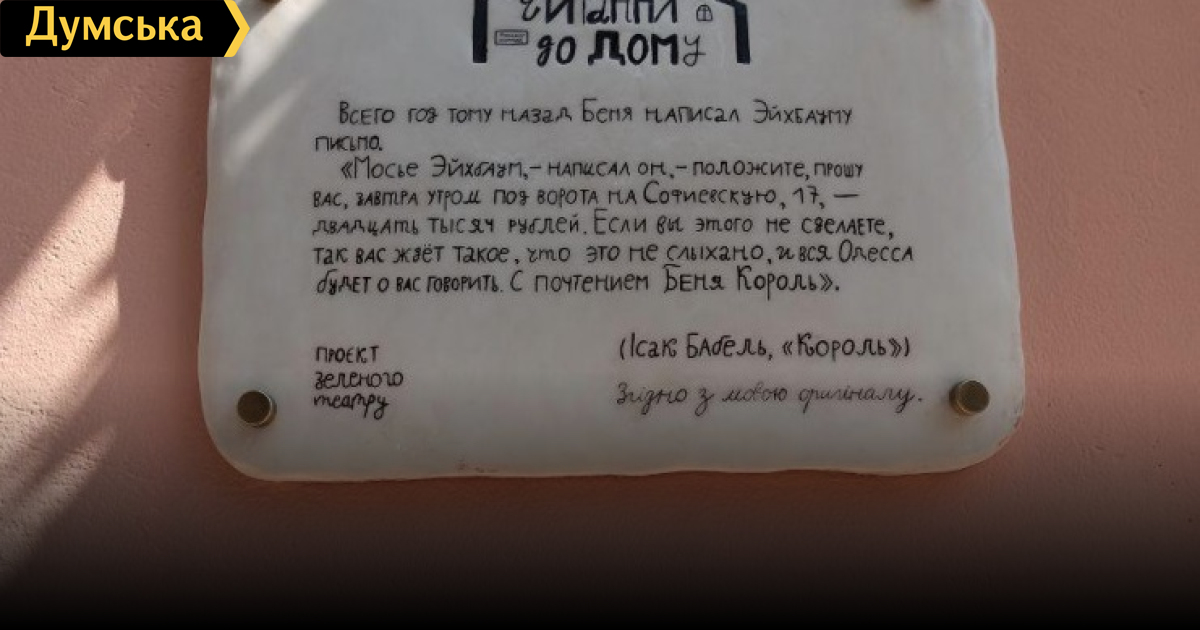 Думська
читання
до дому
Всего год тому назад Беня написал Эйхбауму
письмо.
«Мосье Эйхбаум,– написал он,– положите, прошу
вас, завтра утром под ворота на Софиевскую, 17, —
двадцать тысяч рублей. Если вы этого не сделаете,
так вас ждёт такое, что это не слыхано, и вся Одесса
будет о вас говорить. С почтением Беня Король».
проєкт
зеленого
театру
(Ісак Бабель, «Король»)
Згідно з мовою оригіналу.